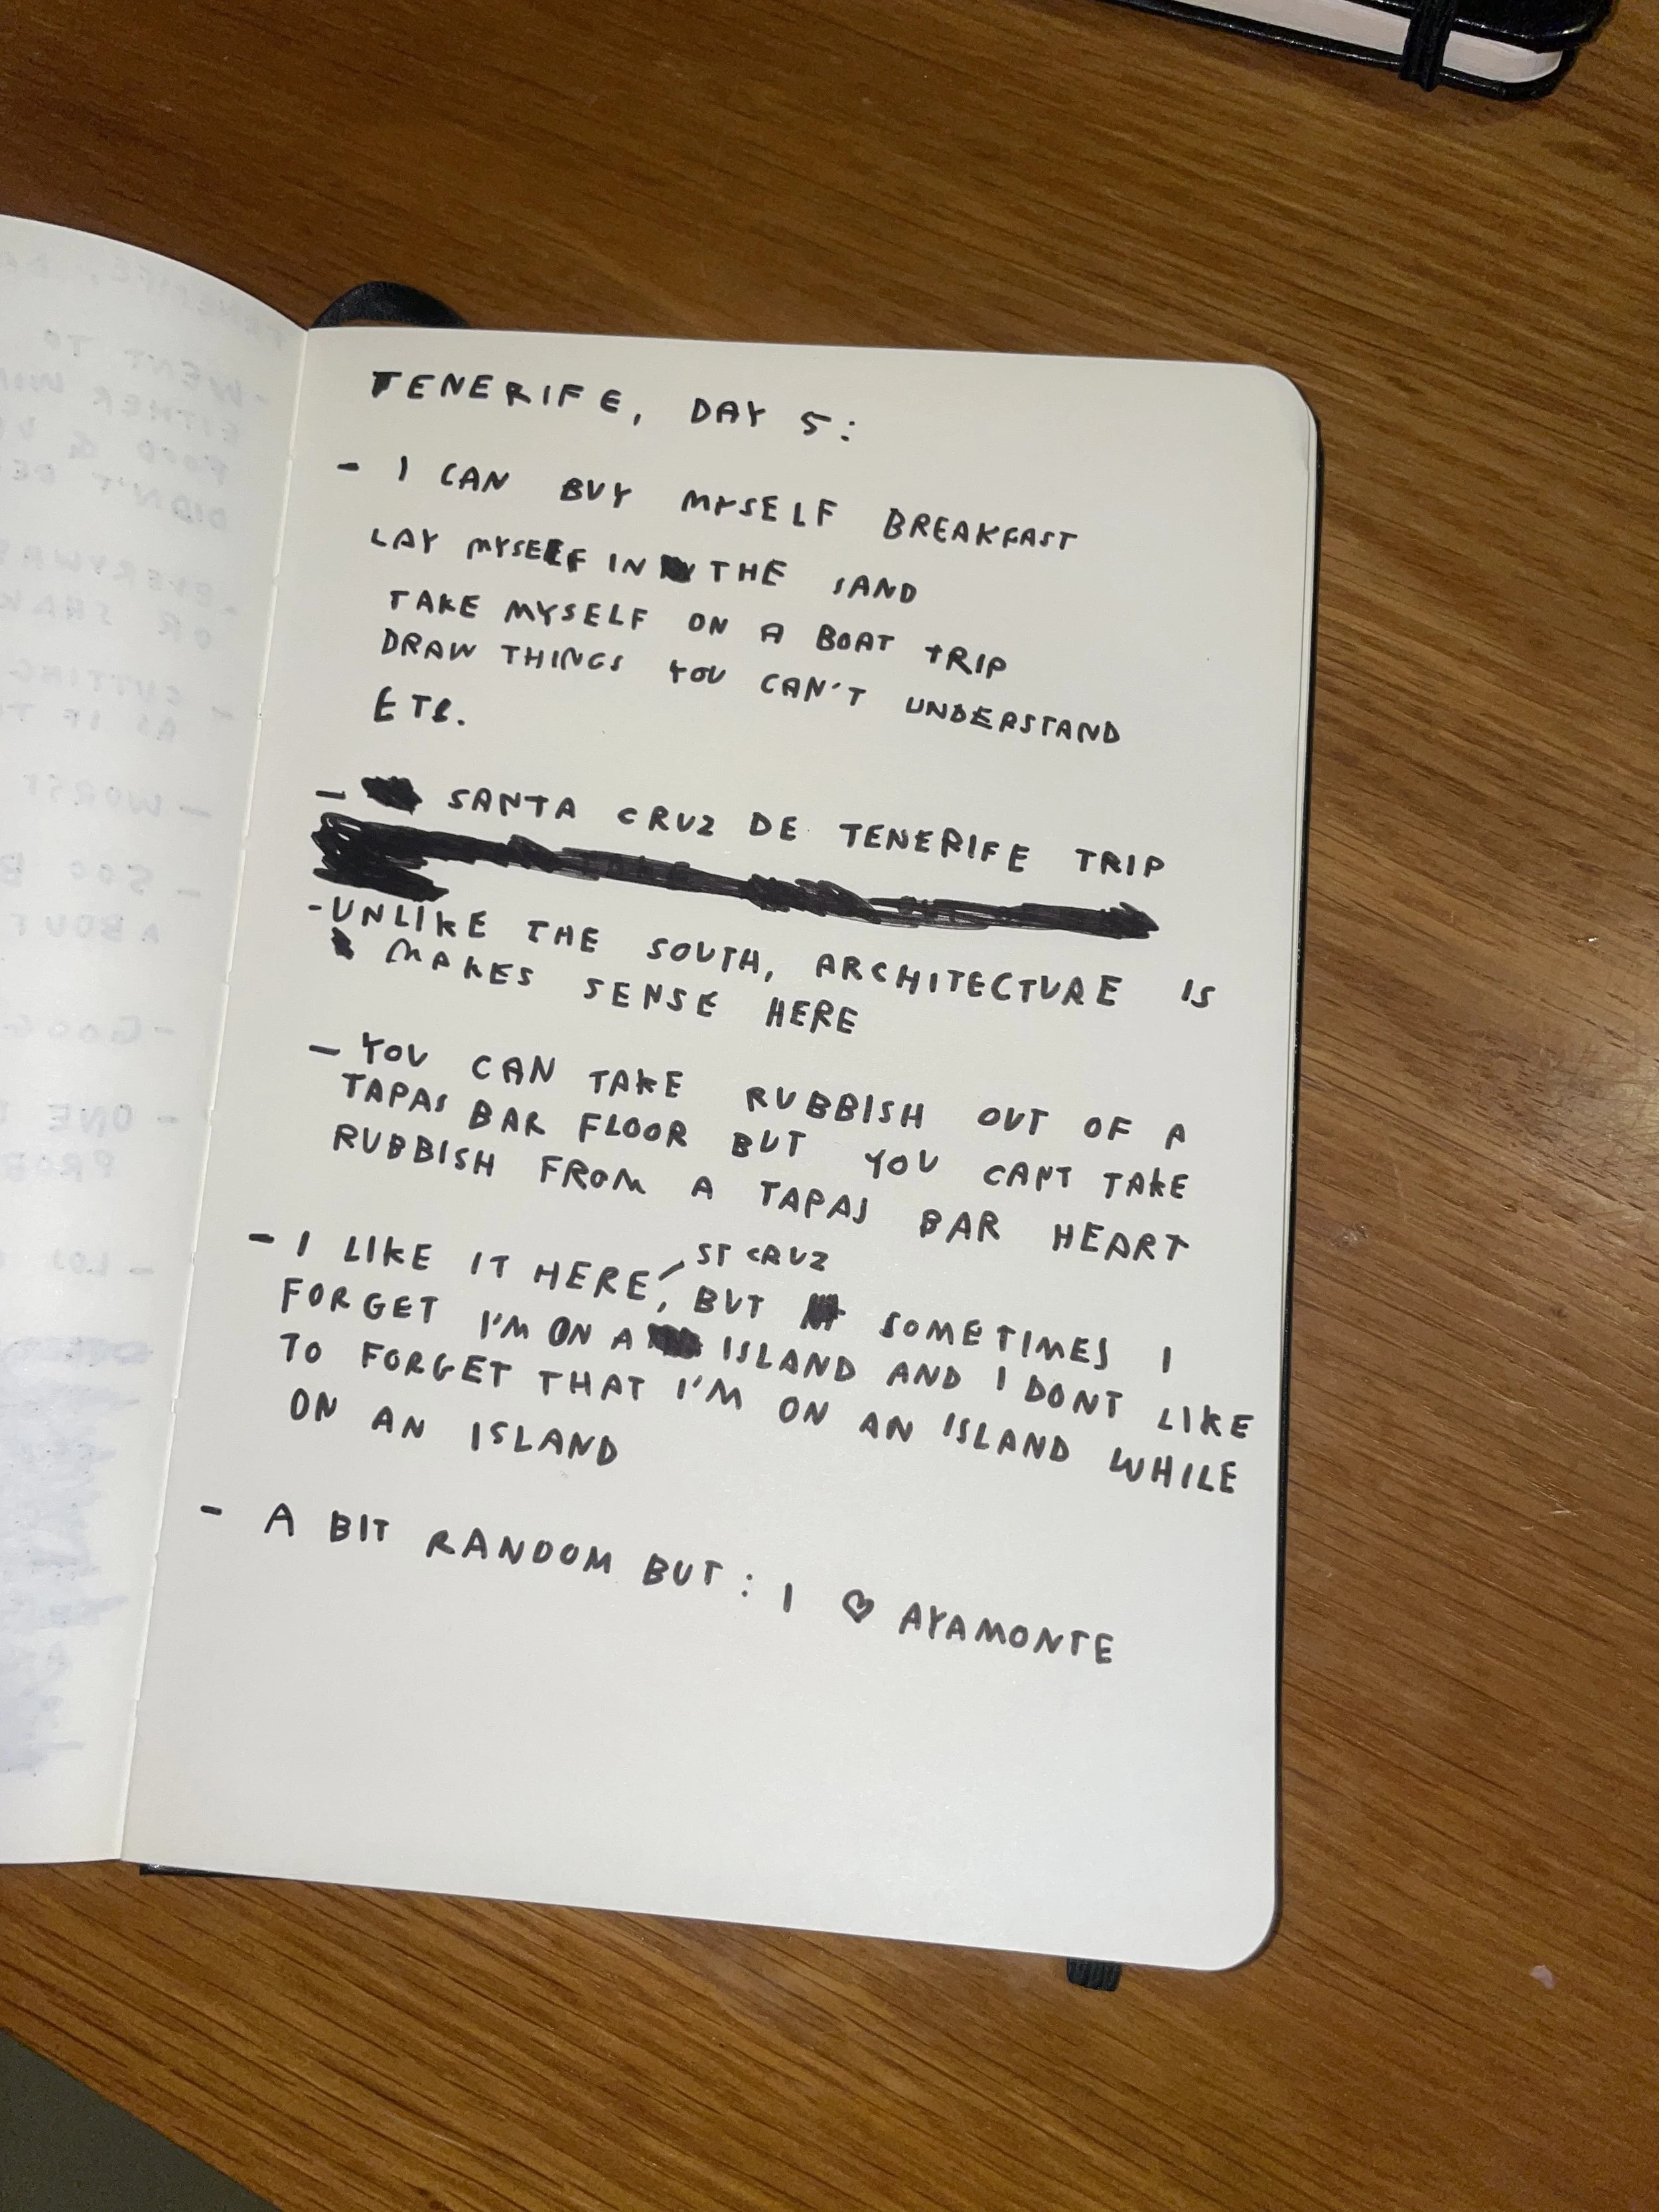 TENERIFE, DAY 5:
- I CAN BUY MYSELF BREAKFAST
LAY MYSELF IN THE SAND
TAKE MYSELF ON A BOAT TRIP
DRAW THINGS YOU CAN'T UNDERSTAND
ETC.
- SANTA CRUZ DE TENERIFE TRIP
- UNLIKE THE SOUTH, ARCHITECTURE IS
MAKES SENSE HERE
- YOU CAN TAKE RUBBISH OUT OF A
TAPAS BAR FLOOR BUT YOU CANT TAKE
RUBBISH FROM A TAPAS BAR HEART
ST CRUZ
- I LIKE IT HERE, BUT SOMETIMES I
FORGET I'M ON A ISLAND AND I DONT LIKE
TO FORGET THAT I'M ON AN ISLAND WHILE
ON AN ISLAND
- A BIT RANDOM BUT: I ♡ AYAMONTE